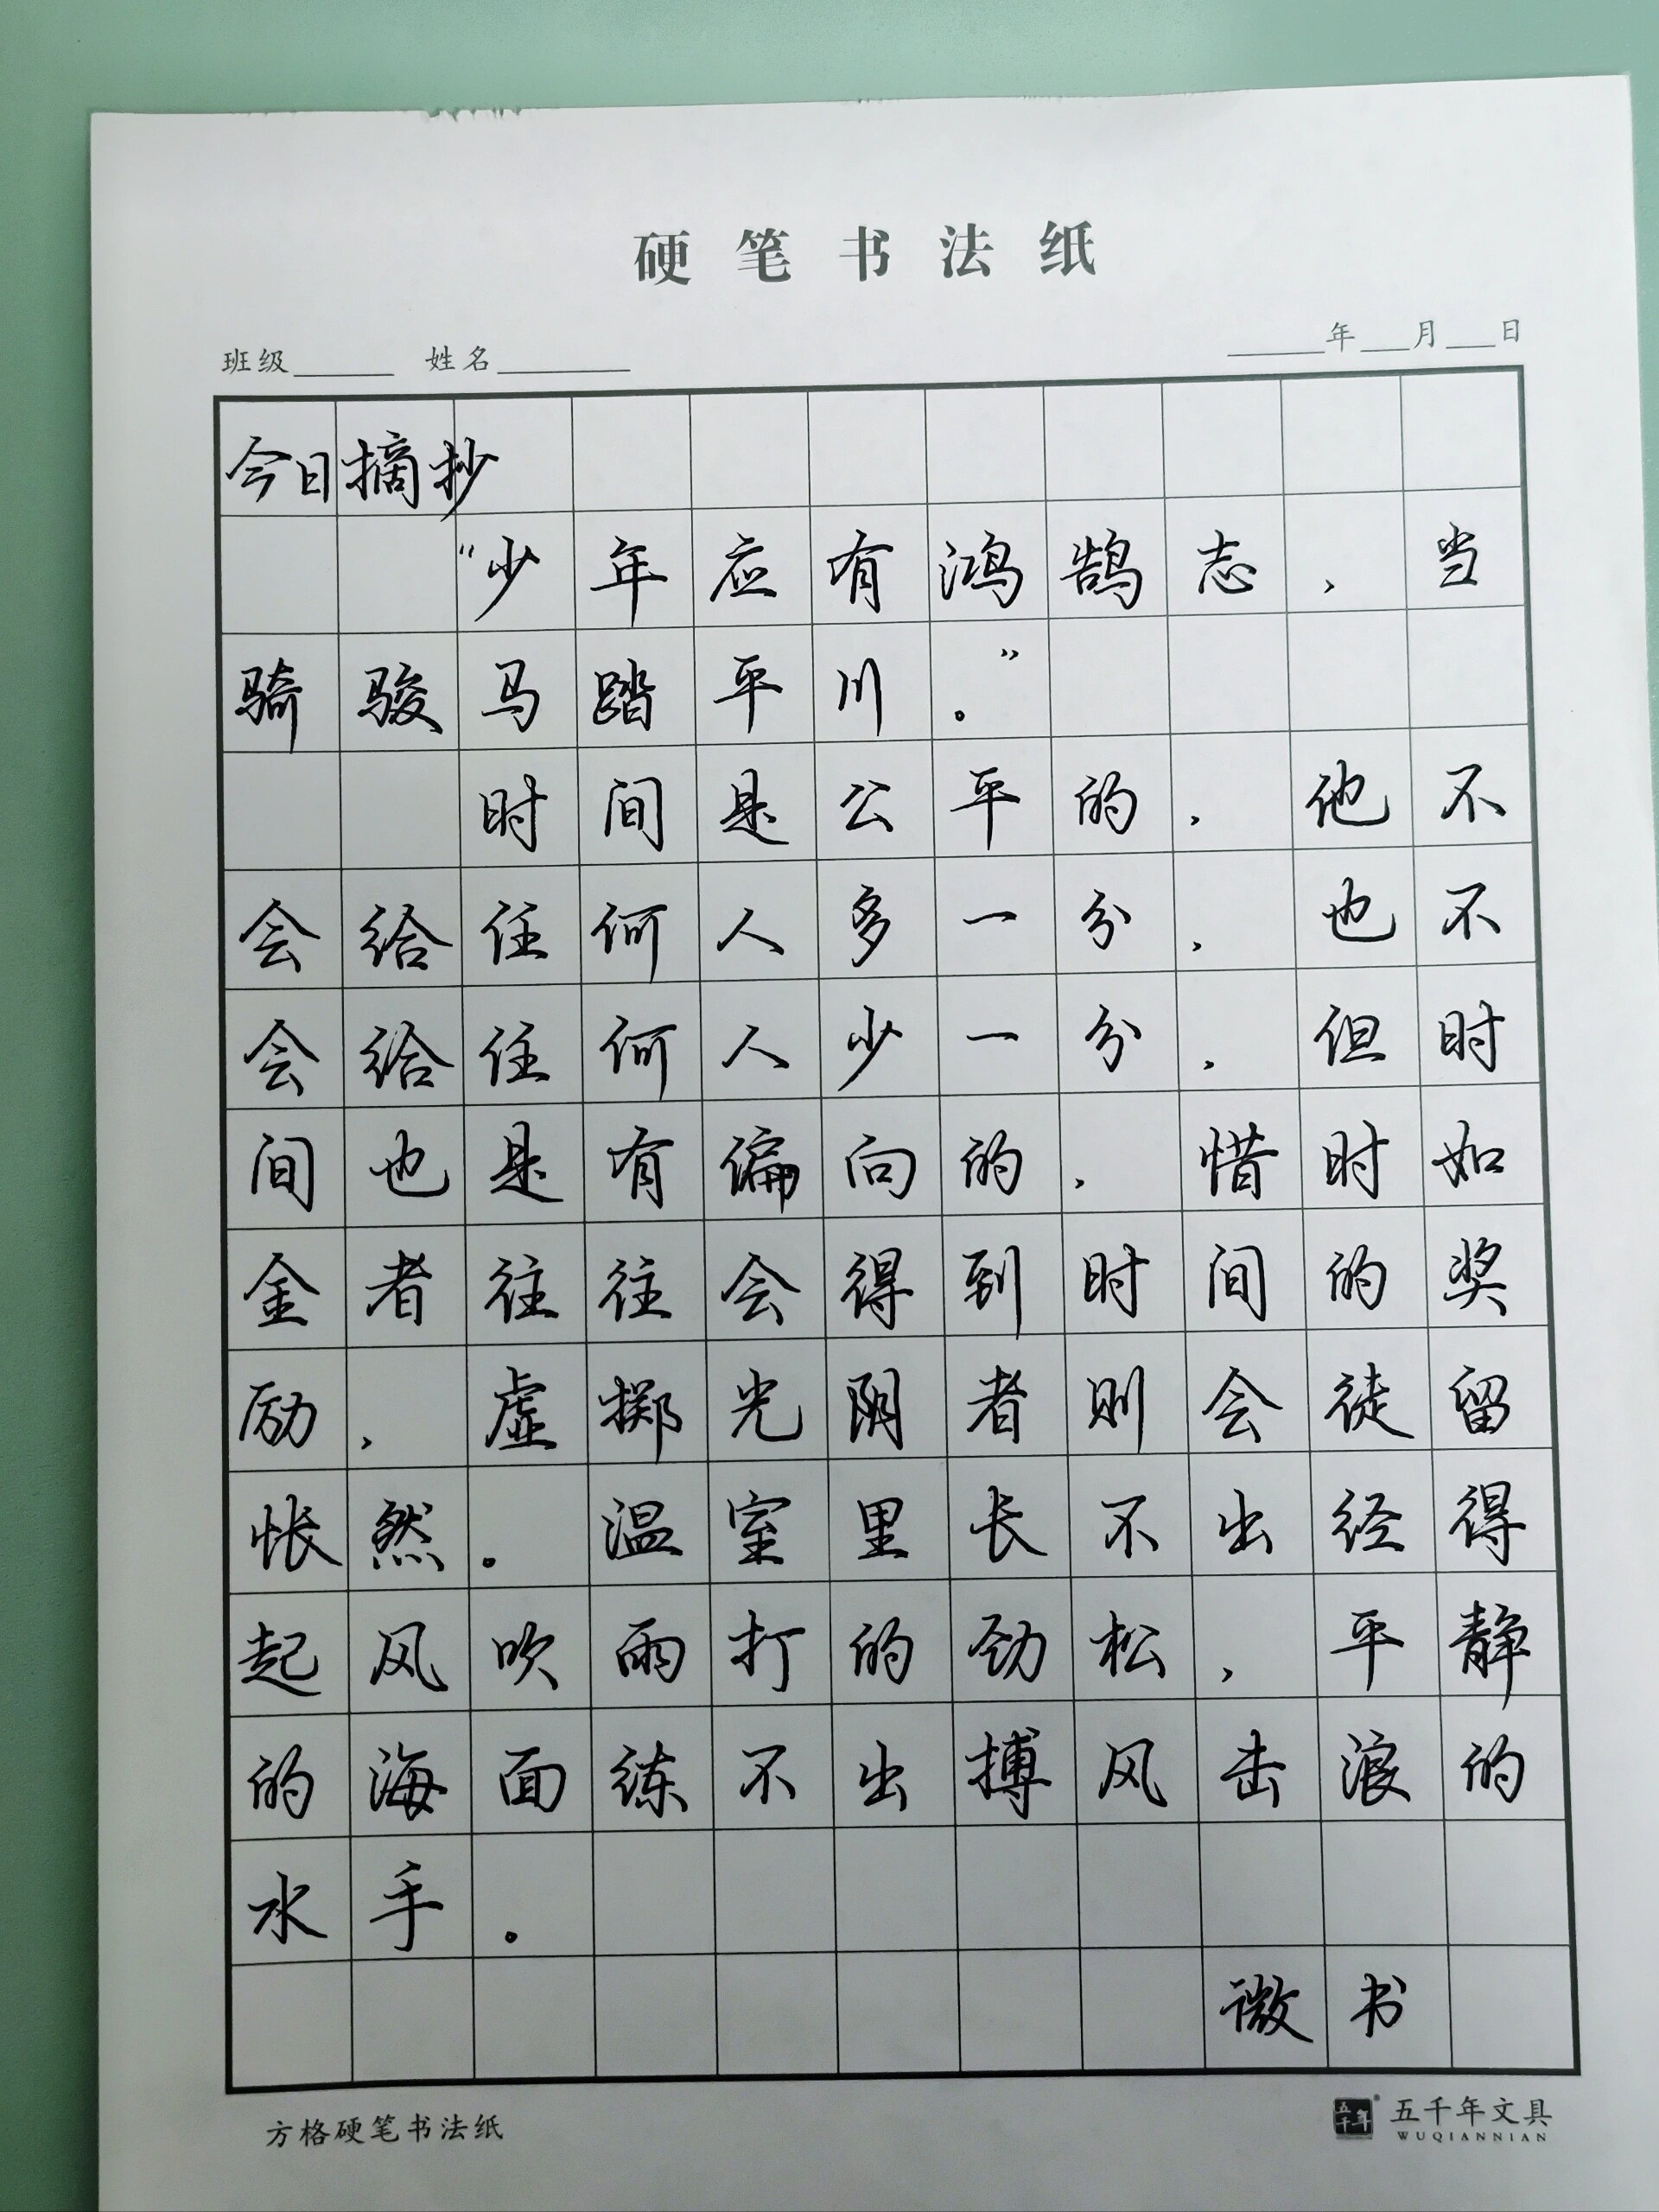 硬笔书法纸
班级 姓名 年 月 日
今日摘抄
“少年应有鸿鹄志，当
骑骏马踏平川。”
时间是公平的，他不
会给任何人多一分，也不
会给任何人少一分，但时
间也是有偏向的，惜时如
金者往往会得到时间的奖
励，虚掷光阴者则会徒留
怅然。温室里长不出经得
起风吹雨打的劲松，平静
的海面练不出搏风击浪的
水手。
微书
方格硬笔书法纸
五千年 ® 五千年文具
WUQIANNIAN